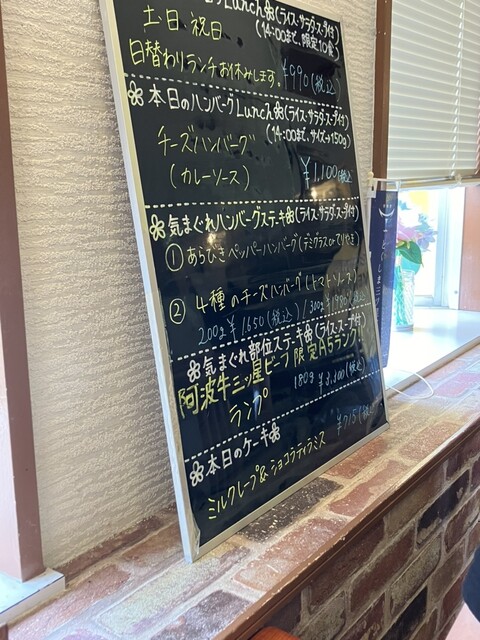 Lunch❀(ライス・サラダ・スープ付)
(14:00まで、限定10食)
土日、祝日
日替わりランチお休みします。¥990(税込)
❀本日のハンバーグLunch❀(ライス・サラダ・スープ付)
(14:00まで、サイズ→150g)
チーズハンバーグ
(カレーソース)
¥1,100(税込)
❀気まぐれハンバーグステーキ❀(ライス・サラダ・スープ付)
① あらびきペッパーハンバーグ(デミグラスorてりやき)
② 4種のチーズハンバーグ(トマトソース)
200g ¥1650(税込)/300g ¥1990(税込)
❀気まぐれ部位ステーキ❀(ライス・スープ付)
阿波牛三ッ星ビーフ 限定A5ランク!
ランプ
180g ¥3,300(税込)
❀本日のケーキ❀
¥715(税込)
ミルクレープ&ショコラティラミス